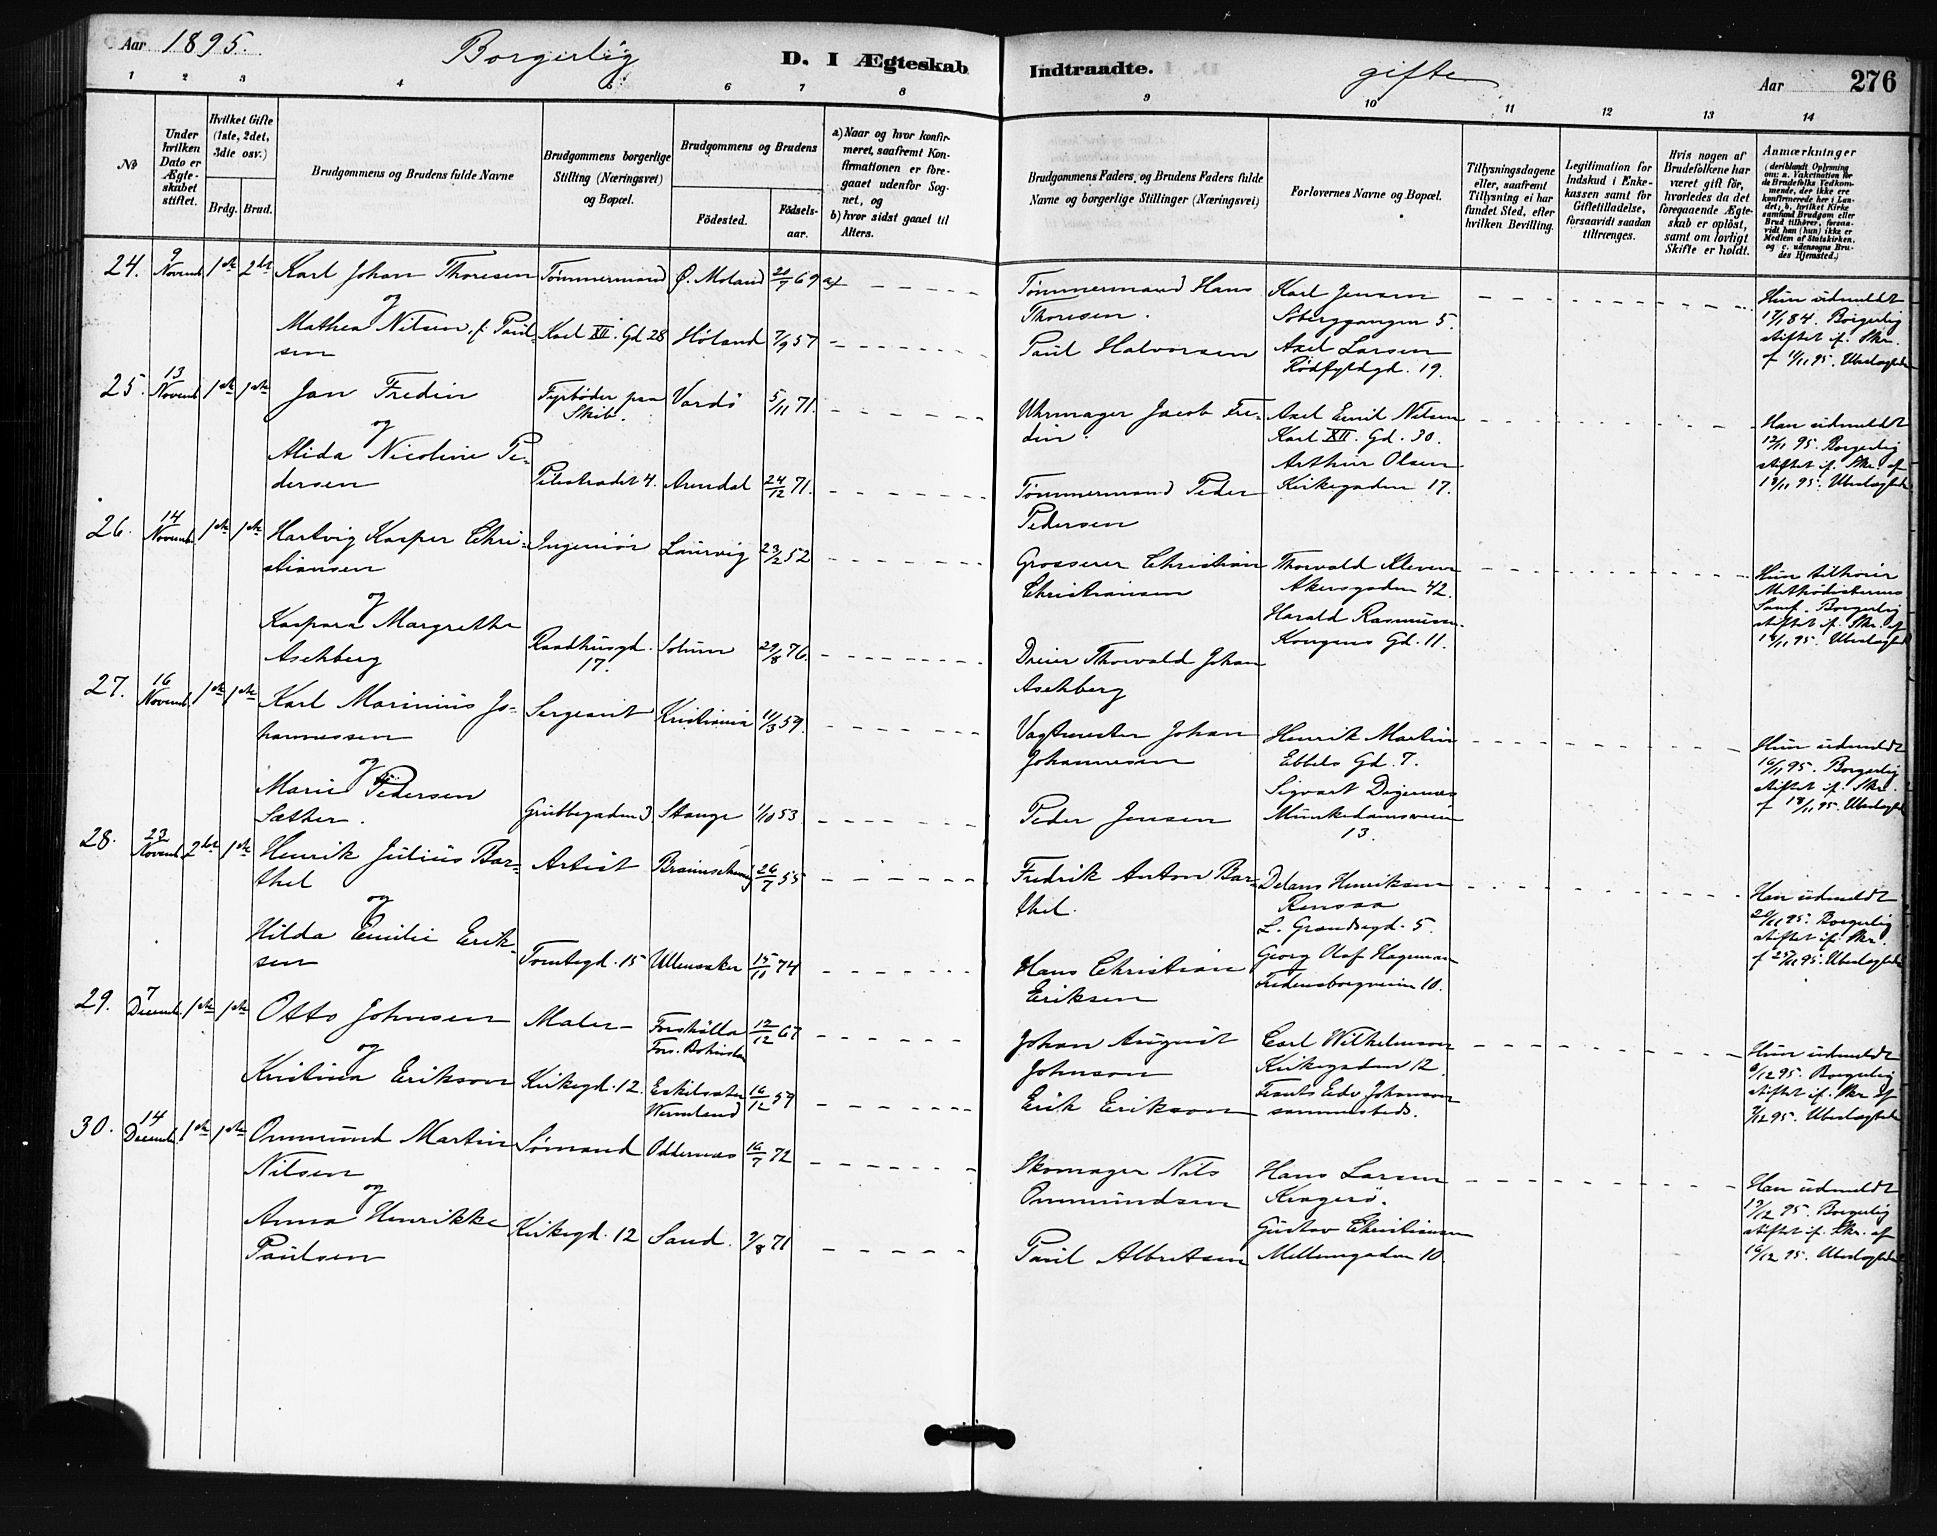 Aar 1895. Borgerlig D. I Ægteskab Indtraadte. gifte Aar 276
1 2 3 4 5 6 7 8 9 10 11 12 13 14
No
Under hvilken Dato er Ægteskabet stiftet.
Hvilket Gifte (1ste, 2det, 3die osv.)
Brdg. Brud.
Brudgommens og Brudens fulde Navne
Brudgommens borgerlige Stilling (Næringsvei) og Bopæl.
Brudgommens og Brudens
Födested. Födsels-aar.
a) Naar og hvor konfirmeret, saafremt Konfirmationen er foregaaet udenfor Sognet, og
b) hvor sidst gaaet til Alters.
Brudgommens Faders og Brudens Faders fulde Navne og borgerlige Stillinger (Næringsvei)
Forlovernes Navne og Bopæl.
Tillysningsdagene eller, saafremt Tillysning ei har fundet Sted, efter hvilken Bevilling.
Legitimation for Indskud i Enkekassen samt for Giftetilladelse, forsaavidt saadan tiltrænges.
Hvis nogen af Brudefolkene har været gift för, hvorledes da det foregaaende Ægteskab er oplöst, samt om lovligt Skifte er holdt.
Anmærkninger
(deriblandt Oplysning om: a. Vakcination for de Brudefolks Vedkommende, der ikke ere konfirmerede her i Landet; b. hvilket Kirkesamfund Brudgom eller Brud tilhörer, forsaavidt han (hun) ikke er Medlem af Statskirken, og c. udensogns Brudes Hjemsted.)
24. 9 Novemb. 1ste 2det Karl Johan Thoresen Tømmermand Ø. Moland 20/7 69 a)
Tømmermand Hans Thoresen. Karl Jensen
Søberggangen 5.
og
Mathea Nilsen, f. Paulsen Karl XII. Gd 28 Høland 7/9 57
Paul Halvorsen Axel Larsen
Rødfyldgd. 19.
Hun udmeldt
17/1 84. Borgerlig
stiftet if. Skr.
af 11/11 95. Ubeslægtede
25. 13 Novemb. 1ste 1ste Jan Fredin Fyrbøder paa Skib. Vardö 5/11 71.
Uhrmager Jacob Fredin. Axel Emil Nilsen
Karl XII. Gd. 30.
og
Alida Nicoline Pedersen Pilestrædet 4. Arendal 24/12 71.
Tømmermand Peder Pedersen Arthur Olsen
Kirkegaden 17.
Han udmeldt
12/11 95. Borgerlig
stiftet if. Skr. af
13/11 95. Ubeslægtede
26. 14 Novemb. 1ste 1ste Hartvig Kasper Christiansen Ingeniör Laurvig 23/2 52
Grosserer Christian Christiansen Thorvald Kleven
Akersgaden 42.
og
Kaspara Margrethe Aschberg Raadhusgd. 17. Solum 29/8 76.
Dreier Thorvald Johan Aschberg Harald Rasmussen
Kongens Gd. 11.
Hun tilhører
Methodisternes
Samf. Borgerlig
stiftet if. Skr. af
Ubeslægtede
27. 16 Novemb. 1ste 1ste Karl Marinius Johannessen Sergeant Kristiania 11/3 59.
Vagtmester Johan Johannesen Henrik Martin
Ebbels Gd. 7.
og
Marie Pedersen Sæther. Grubbegaden 3 Stange 1/10 53
Peder Jensen Sigvart Digernæs
Munkedamsveien
13.
Hun udmeldt
16/11 95. Borgerlig
stiftet if. Skr.
af 18/11 95. Ubeslægtede
28. 23 Novemb. 2det 1ste Henrik Julius Barthel Artist Braunschweig 26/7 55
Fredrik Anton Barthel. Henriksen
L. Grændsegd. 5.
og
Hilda Emilie Eriksen Tomtegd. 15 Ullensaker 74
Hans Christian Eriksen Georg Olaf Hageman
Fredensborgveien 10.
Han udmeldt
Borgerlig
stiftet if. Skr.
af Ubeslægtede
29. 7 Decemb. 1ste 1ste Otto Johnsen Maler 12/12 67
Johan August Johnson Carl Wilhelmson
Kirkegaden 12.
og
Kristina Erikson Kirkegd. 12. Eskilsæter Wermland 16/12 59
Erik Erikson Frants Edv Johnson
sammesteds.
Hun udmeldt
6/12 95. Borgerlig
stiftet if. Skr af
7/12 95. Ubeslægtede
30. 14 Decemb. 1ste 1ste Ommund Martin Nilsen Sømand Oddernæs 16/7 72
Skomager Nils Ommundsen Hans Larsen
Kragerø.
og
Anna Henrikke Paulsen Kirkegd. 12 Sand. 9/8 71
Paul Albretsen Gustav Christiansen
Møllergaden 10.
Han udmeldt
Borgerlig
stiftet if. Skr. af
16/12 95. Ubeslægtede